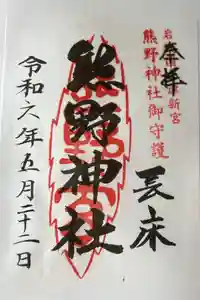 奉拝
岩代新宮
熊野神社御守護
長床
熊野神社
令和六年五月二十二日